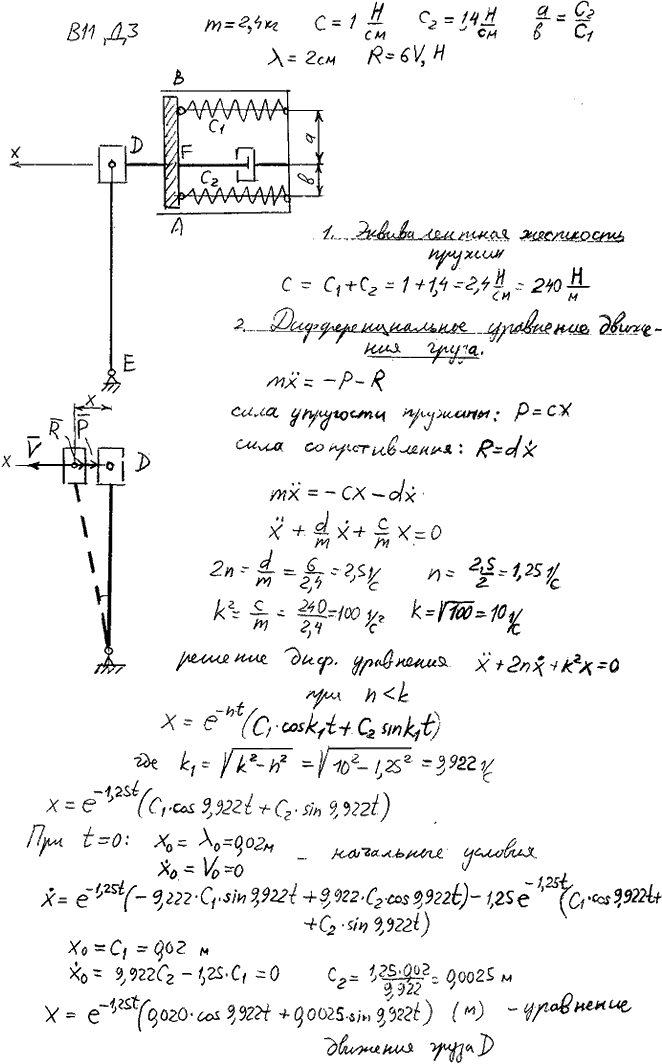 В11, Д3 m=2,4кг C=1 Н/см C₂=1,4 Н/см a/в = C₂/C₁
λ=2см R=6V, Н
B
C₁
a
x D F
C₂
в
A
E
1. Эквивалентная жесткость
пружин
C = C₁+C₂ = 1+1,4 = 2,4 Н/см = 240 Н/м
2. Дифференциальное уравнение движе-
ния груза.
mẍ = -P-R
сила упругости пружины: P=cx
сила сопротивления: R=dẋ
x
R̄ P̄
V̄
x D
mẍ = -cx-dẋ
ẍ + d/m ẋ + c/m x = 0
2n = d/m = 6/2,4 = 2,5 1/с n = 2,5/2 = 1,25 1/с
k² = c/m = 240/2,4 = 100 1/с² k = √100 = 10 1/с
решение диф. уравнения ẍ+2nẋ+k²x=0
при n<k
x = e^-nt (C₁·cosk₁t + C₂ sink₁t)
где k₁ = √k²-n² = √10²-1,25² = 9,922 1/с
x = e^-1,25t (C₁·cos 9,922t + C₂·sin 9,922t)
При t=0: x₀ = λ₀ = 0,02м
ẋ₀ = V₀ = 0 - начальные условия
ẋ = e^-1,25t (-9,222·C₁·sin9,922t + 9,922·C₂·cos9,922t) - 1,25e^-1,25t (C₁·cos9,922t+
+C₂·sin9,922t)
x₀ = C₁ = 0,02 м
ẋ₀ = 9,922C₂ - 1,25·C₁ = 0 C₂ = 1,25·0,02/9,922 = 0,0025 м
x = e^-1,25t (0,020·cos 9,922t + 0,0025·sin 9,922t) (м) - уравнение
движения груза D